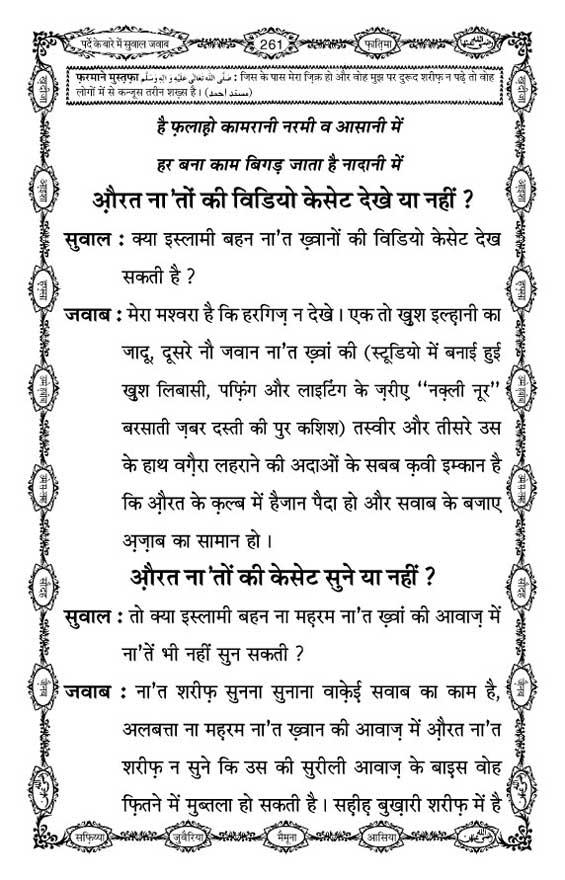 पर्दे के बारे में सुवाल जवाब 261 फ़ातिमा
फ़रमाने मुस्तफ़ा صلى الله تعالى عليه واله وسلم : जिस के पास मेरा ज़िक्र हो और वोह मुझ पर दुरूद शरीफ़ न पढ़े तो वोह
लोगों में से कन्जूस तरीन शख़्स है। (مسند احمد)
है फ़लाहो कामरानी नरमी व आसानी में
हर बना काम बिगड़ जाता है नादानी में
औ़रत ना'तों की विडियो केसेट देखे या नहीं ?
सुवाल : क्या इस्लामी बहन ना'त ख़्वानों की विडियो केसेट देख
सकती है ?
जवाब : मेरा मश्वरा है कि हरगिज़ न देखे। एक तो खुश इल्हानी का
जादू, दूसरे नौ जवान ना'त ख़्वां की (स्टूडियो में बनाई हुई
खुश लिबासी, पफ़िंग और लाइटिंग के ज़रीए "नक़्ली नूर"
बरसाती ज़बर दस्ती की पुर कशिश) तस्वीर और तीसरे उस
के हाथ वग़ैरा लहराने की अदाओं के सबब क़वी इम्कान है
कि औ़रत के क़ल्ब में हैजान पैदा हो और सवाब के बजाए
अ़ज़ाब का सामान हो।
औ़रत ना'तों की केसेट सुने या नहीं ?
सुवाल : तो क्या इस्लामी बहन ना महरम ना'त ख़्वां की आवाज़ में
ना'तें भी नहीं सुन सकती ?
जवाब : ना'त शरीफ़ सुनना सुनाना वाक़ेई सवाब का काम है,
अलबत्ता ना महरम ना'त ख़्वान की आवाज़ में औ़रत ना'त
शरीफ़ न सुने कि उस की सुरीली आवाज़ के बाइस वोह
फ़ितने में मुब्तला हो सकती है। सह़ीह़ बुख़ारी शरीफ़ में है
सफ़िय्या जुवैरिया मैमूना आसिया